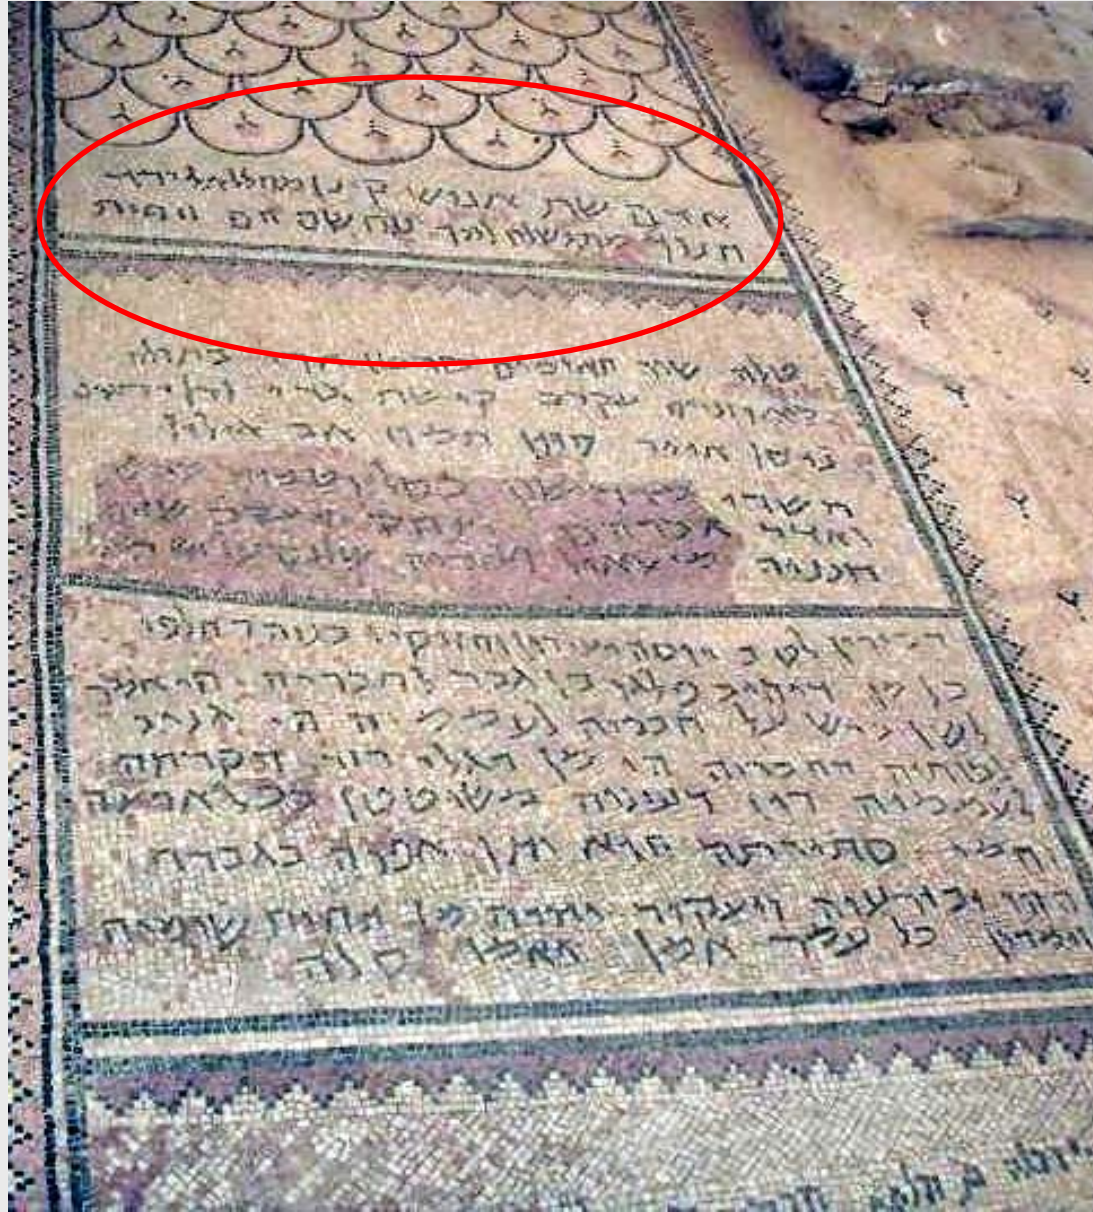 אדם שת אנוש קינן מהללאל ירד
חנוך מתושלח למך נח שם חם ויפת
טלה שור תאומים סרטן ארי בתולה
מאוזניים עקרב קישת גדי ודלי דגים
ניסן אייר סיון תמוז אב אילול
תשרי מרחשון כסליו טבית שבט
ואדר אברהם יצחק יעקב שלום
חנניה מישאיל ועזריה שלום על ישראל
דכירין לטב יוסה ועירון וחזיקיו בנוה דחלפי
כל מן דיהיב פלגו בן גבר לחבריה הי אמר
לשן ביש על חבריה לעממיה הי גניב
צבותיה דחבריה הי מן דגלי רזה דקרתה
לעממיה דין דעינוה משוטטן בכל ארעה
וחמי סתירתה הוא יתן אפוה בגברה
ההו ובזרעיה ויעקור יתיה מן תחות שומיה
וימרון כל עמה אמן ואמן סלה